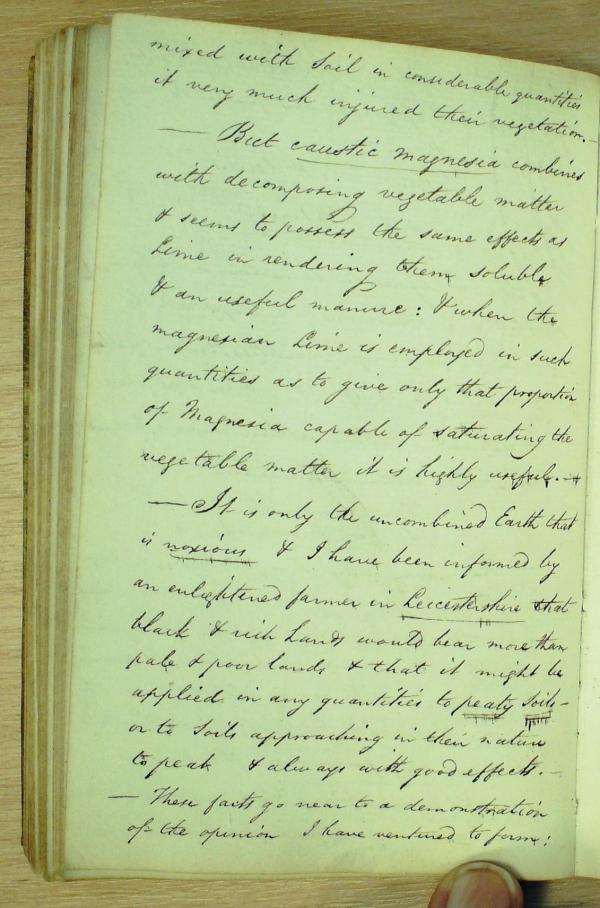 mixed with Soil in considerable quantities
it very much injured their vegetation. —
— But caustic magnesia combines
with decomposing vegetable matter
& seems to possess the same effects as
Lime in rendering them soluble
& an useful manure: & when the
magnesian Lime is employed in such
quantities as to give only that proportion
of Magnesia capable of saturating the
vegetable matter it is highly useful. —
— It is only the uncombined Earth that
is noxious & I have been informed by
an enlightened farmer in Leicestershire that
black & rich Lands would bear more than
pale & poor lands & that it might be
applied in any quantities to peaty Soils —
or to Soils approaching in their nature
to peak & always with good effects. —
— These facts go near to a demonstration
of the opinion I have ventured to form: